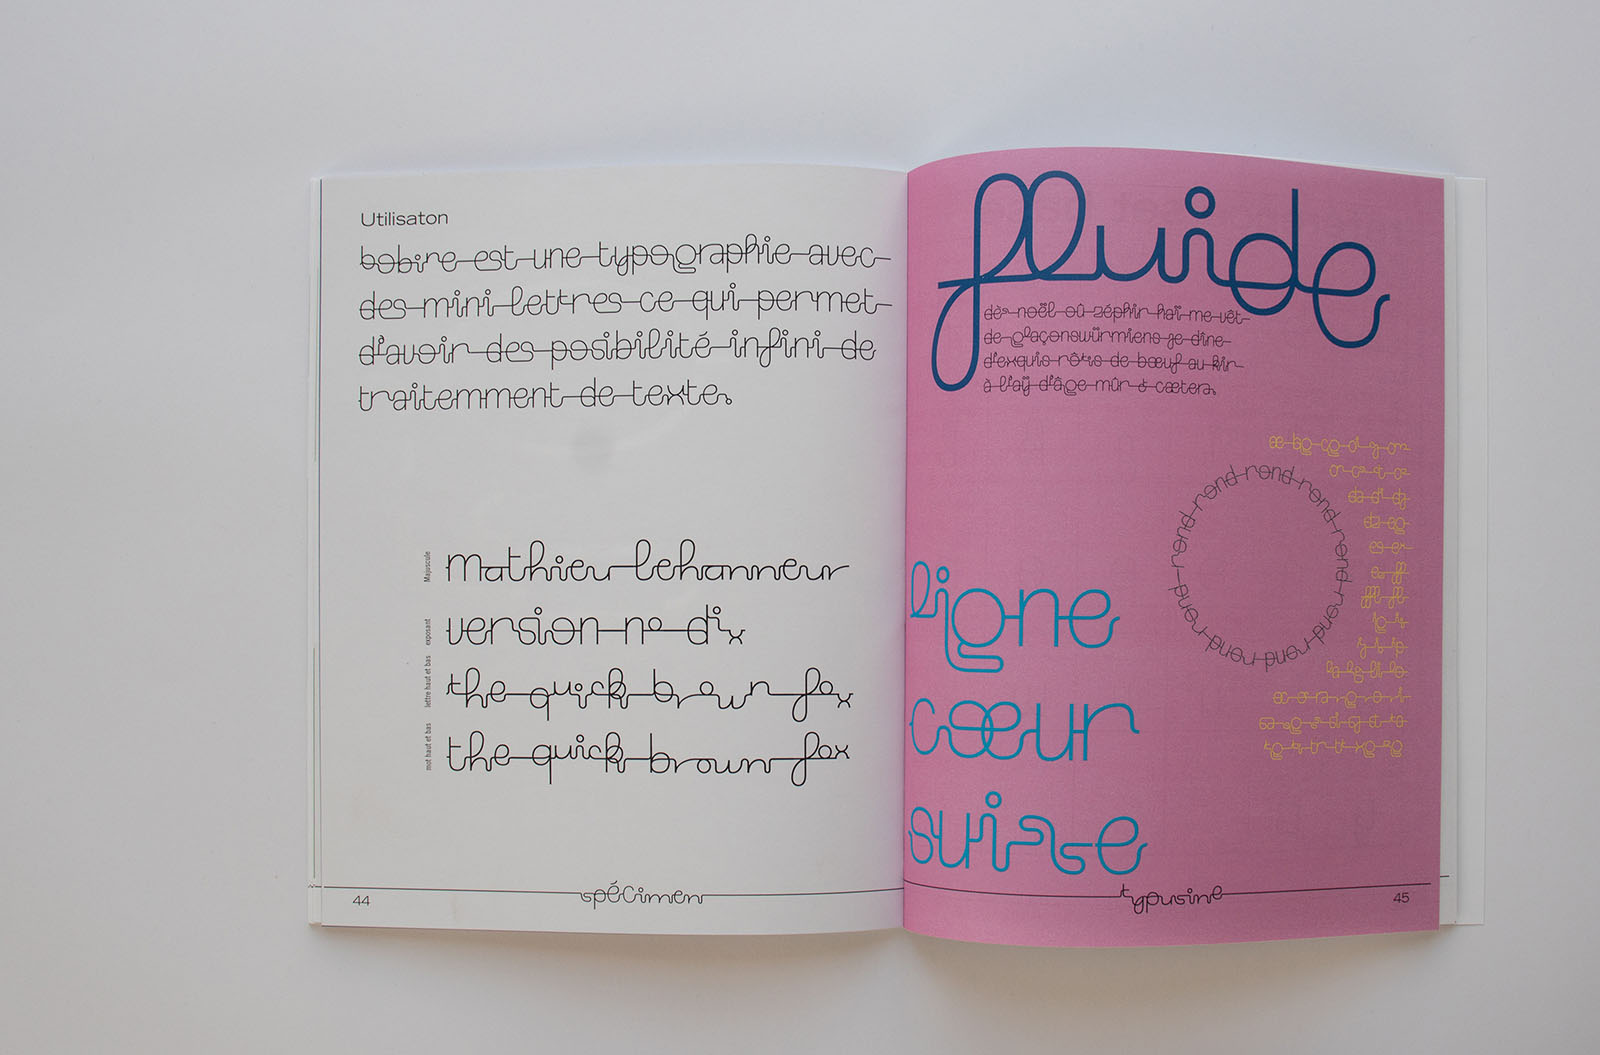 Utilisaton
bobire est une typographie avec
des mini lettres ce qui permet
d'avoir des posibilité infini de
traitemment de texte.
Majuscule
mathieu lehanneur
exposant
version no dix
lettre haut et bas
the quick brown fox
mot haut et bas
the quick brown fox
44
spécimen
fluide
dès noël où zéphir haï me vêt
de glaçons würmiens je dîne
d'exquis rôtis de bœuf au kir
à l'aÿ d'âge mûr & cætera.
rond rond rond rond rond rond rond rond rond rond
ligne
cœur
suisse
typusine
45